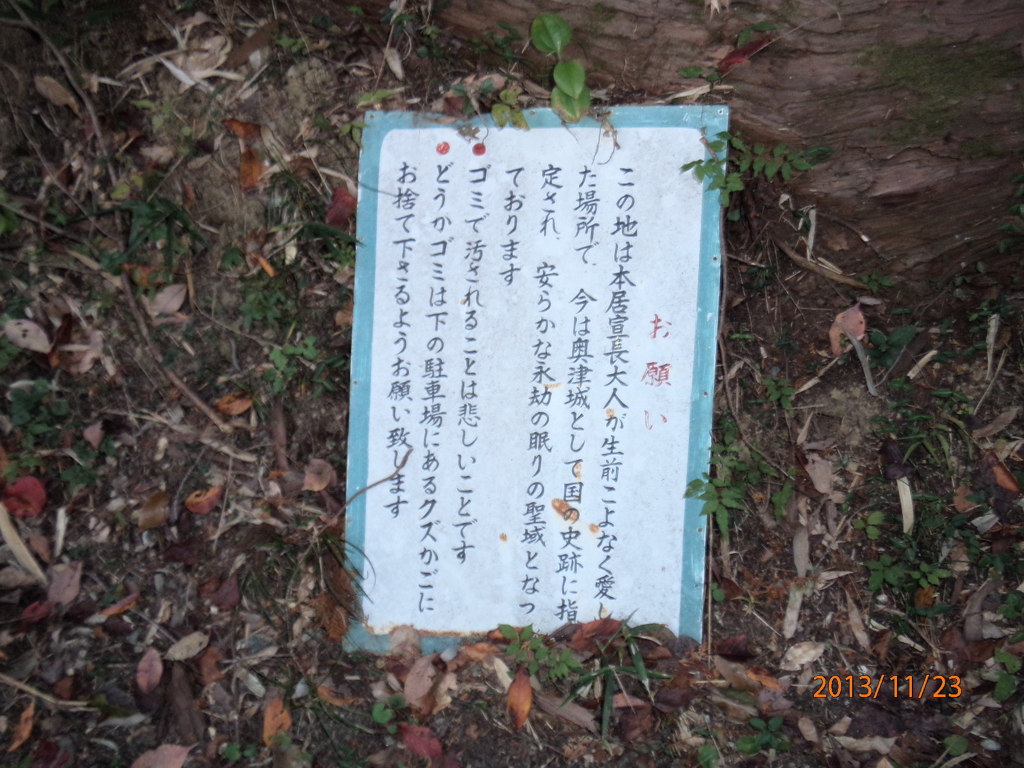 お願い
この地は本居宣長大人が生前こよなく愛し
た場所で、今は奥津城として国の史跡に指
定され、安らかな永劫の眠りの聖域となっ
ております
ゴミで汚されることは悲しいことです
どうかゴミは下の駐車場にあるクズかごに
お捨て下さるようお願い致します
2013/11/23